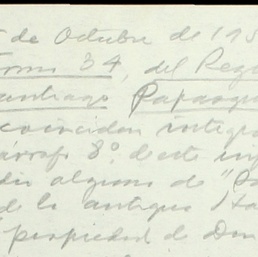 de Octubre de 19
Tomo 34, del Reg
Santiago Papasqu
coinciden integr
párrafo 8º. de este inf
dio alguno de "
de la antigua Ha
propiedad de Don